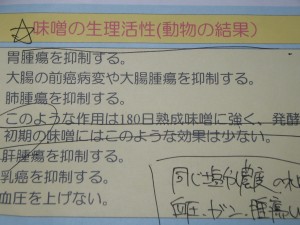 ☆味噌の生理活性(動物の結果)
胃腫瘍を抑制する。
大腸の前癌病変や大腸腫瘍を抑制する。
肺腫瘍を抑制する。
このような作用は180日熟成味噌に強く、発酵
初期の味噌にはこのような効果は少ない。
肝腫瘍を抑制する。
乳癌を抑制する。
血圧を上げない。
同じ塩分濃度の
血圧、ガン、